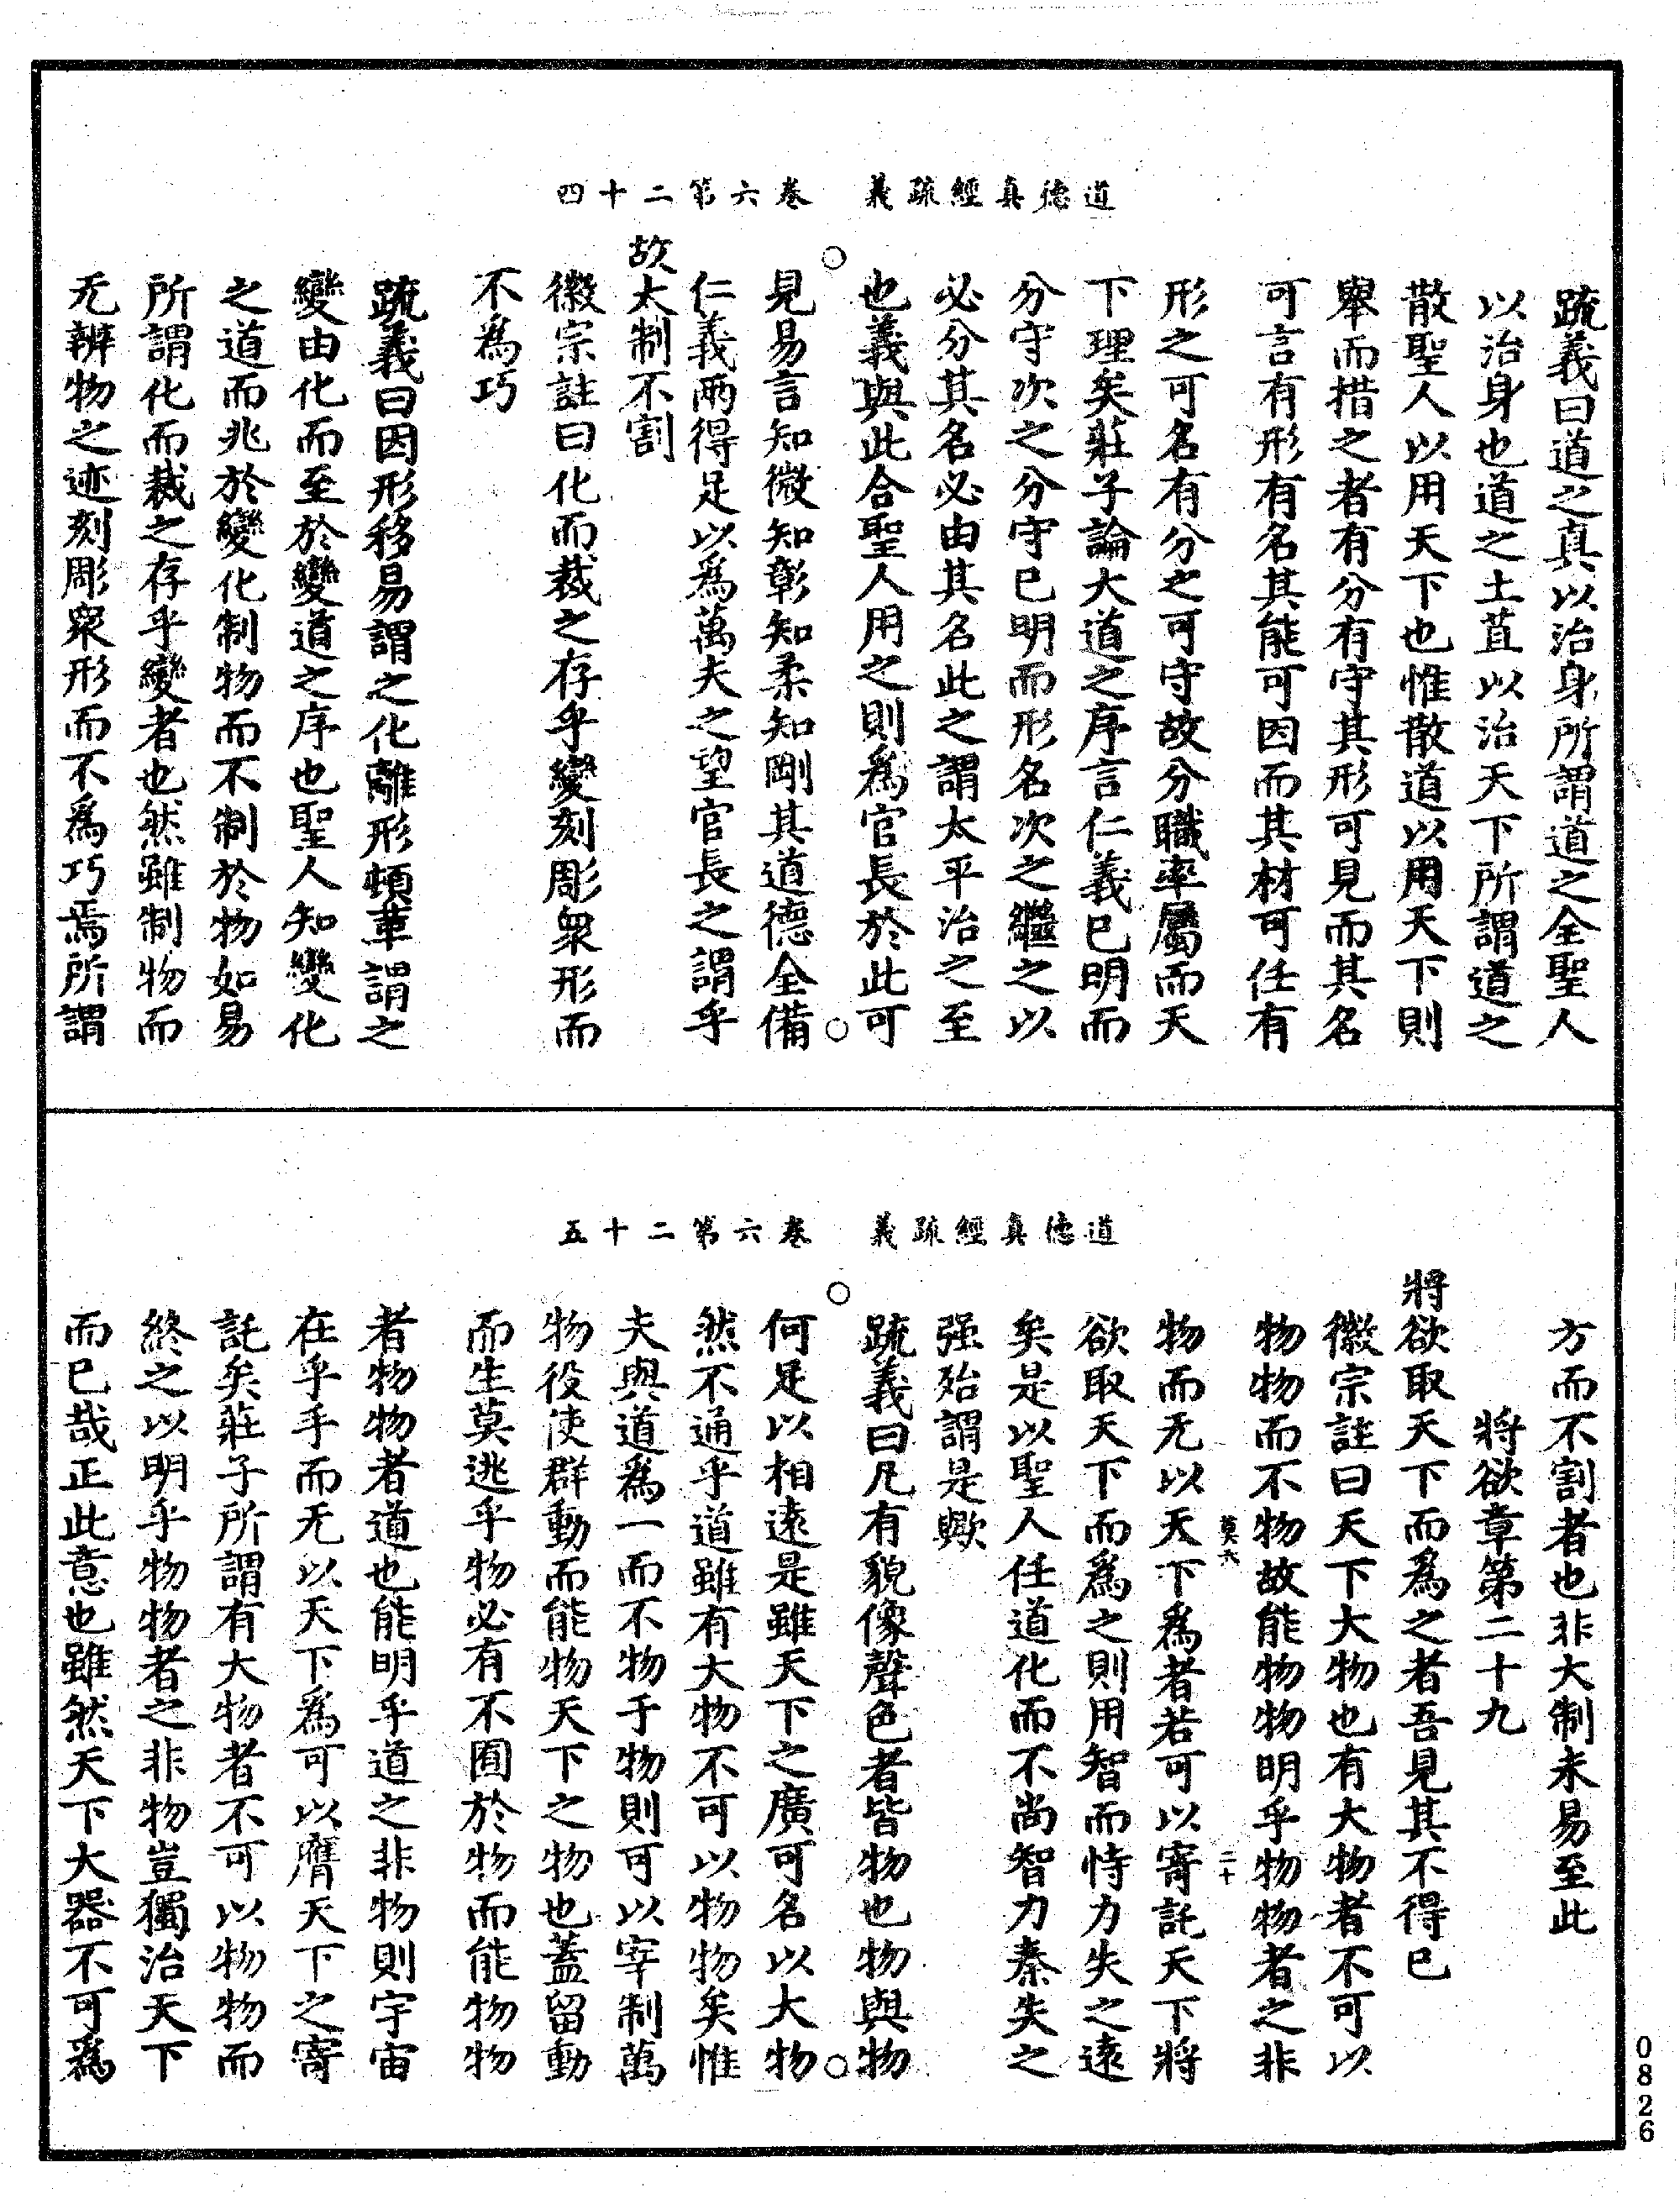 道德真經疏義　卷六第二十四
疏義曰道之真以治身所謂道之全聖人
以治身也道之土苴以治天下所謂道之
散聖人以用天下也惟散道以用天下則
舉而措之者有分有守其形可見而其名
可言有形有名其能可因而其材可任有
形之可名有分之可守故分職率屬而天
下理矣莊子論大道之序言仁義已明而
分守次之分守已明而形名次之繼之以
必分其名必由其名此之謂太平治之至
也義與此合聖人用之則為官長於此可
見易言知微知彰知柔知剛其道德全備
仁義兩得足以為萬夫之望官長之謂乎
故太制不割
徽宗註曰化而裁之存乎變刻彫眾形而
不為巧
疏義曰因形移易謂之化離形頓革謂之
變由化而至於變道之序也聖人知變化
之道而兆於變化制物而不制於物如易
所謂化而裁之存乎變者也然雖制物而
无辨物之迹刻彫眾形而不為巧焉所謂
道德真經疏義　卷六第二十五
方而不割者也非大制未易至此
將欲章第二十九
將欲取天下而為之者吾見其不得已
徽宗註曰天下大物也有大物者不可以
物物而不物故能物物明乎物物者之非
二十
物而无以天下為者若可以寄託天下將
欲取天下而為之則用智而恃力失之遠
矣是以聖人任道化而不尚智力秦失之
强殆謂是歟
疏義曰凡有貌像聲色者皆物也物與物
何足以相遠是雖天下之廣可名以大物
然不通乎道雖有大物不可以物物矣惟
夫與道為一而不物于物則可以宰制萬
物役使群動而能物天下之物也蓋留動
而生莫逃乎物必有不囿於物而能物物
者物物者道也能明乎道之非物則宇宙
在乎手而无以天下為可以膺天下之寄
託矣莊子所謂有大物者不可以物物而
終之以明乎物物者之非物豈獨治天下
而已哉正此意也雖然天下大器不可為
0826